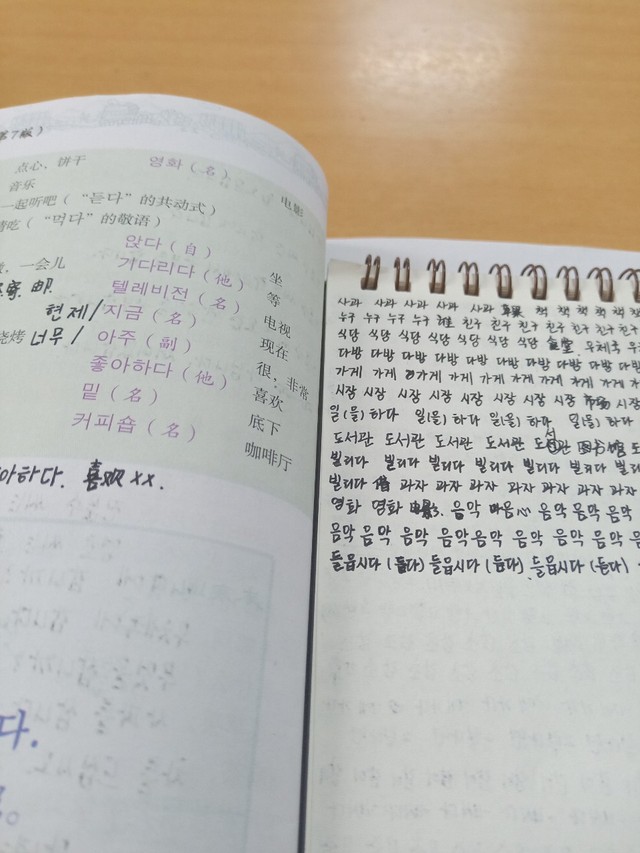 第7版）
点心，饼干 영화（名） 电影
音乐
一起听吧（“듣다”的共动式）
请吃（“먹다”的敬语）
앉다（自） 坐
一会儿 기다리다（他） 等
邮. 텔레비전（名） 电视
현제/지금（名） 现在
烧烤 너무/아주（副） 很，非常
좋아하다（他） 喜欢
밑（名） 底下
커피숍（名） 咖啡厅
아하다. 喜欢 xx.
다.
사과 사과 사과 사과 사과 苹果 책 책 책 책 책
누구 누구 누구 누구 谁 친구 친구 친구 친구 친구 친구
식당 식당 식당 식당 식당 식당 식당 食堂 우체국
다방 다방 다방 다방 다방 다방 다방 다방 다방
가게 가게 가게 가게 가게 가게 가게 가게 가게
시장 시장 시장 시장 시장 시장 시장 시장 市场 시장
일(을) 하다 일(을) 하다 일(을) 하다 일(을) 하다
도서관 도서관 도서관 도서관 도서관 图书馆
빌리다 빌리다 빌리다 빌리다 빌리다 빌리다 빌리
빌리다 借 과자 과자 과자 과자 과자 과자 과자
영화 영화 电影. 음악 음악 음악 음악 음악
음악 음악 음악 음악 음악 음악 음악 음악
들읍시다 (듣다) 들읍시다 (듣다) 들읍시다 (듣다)